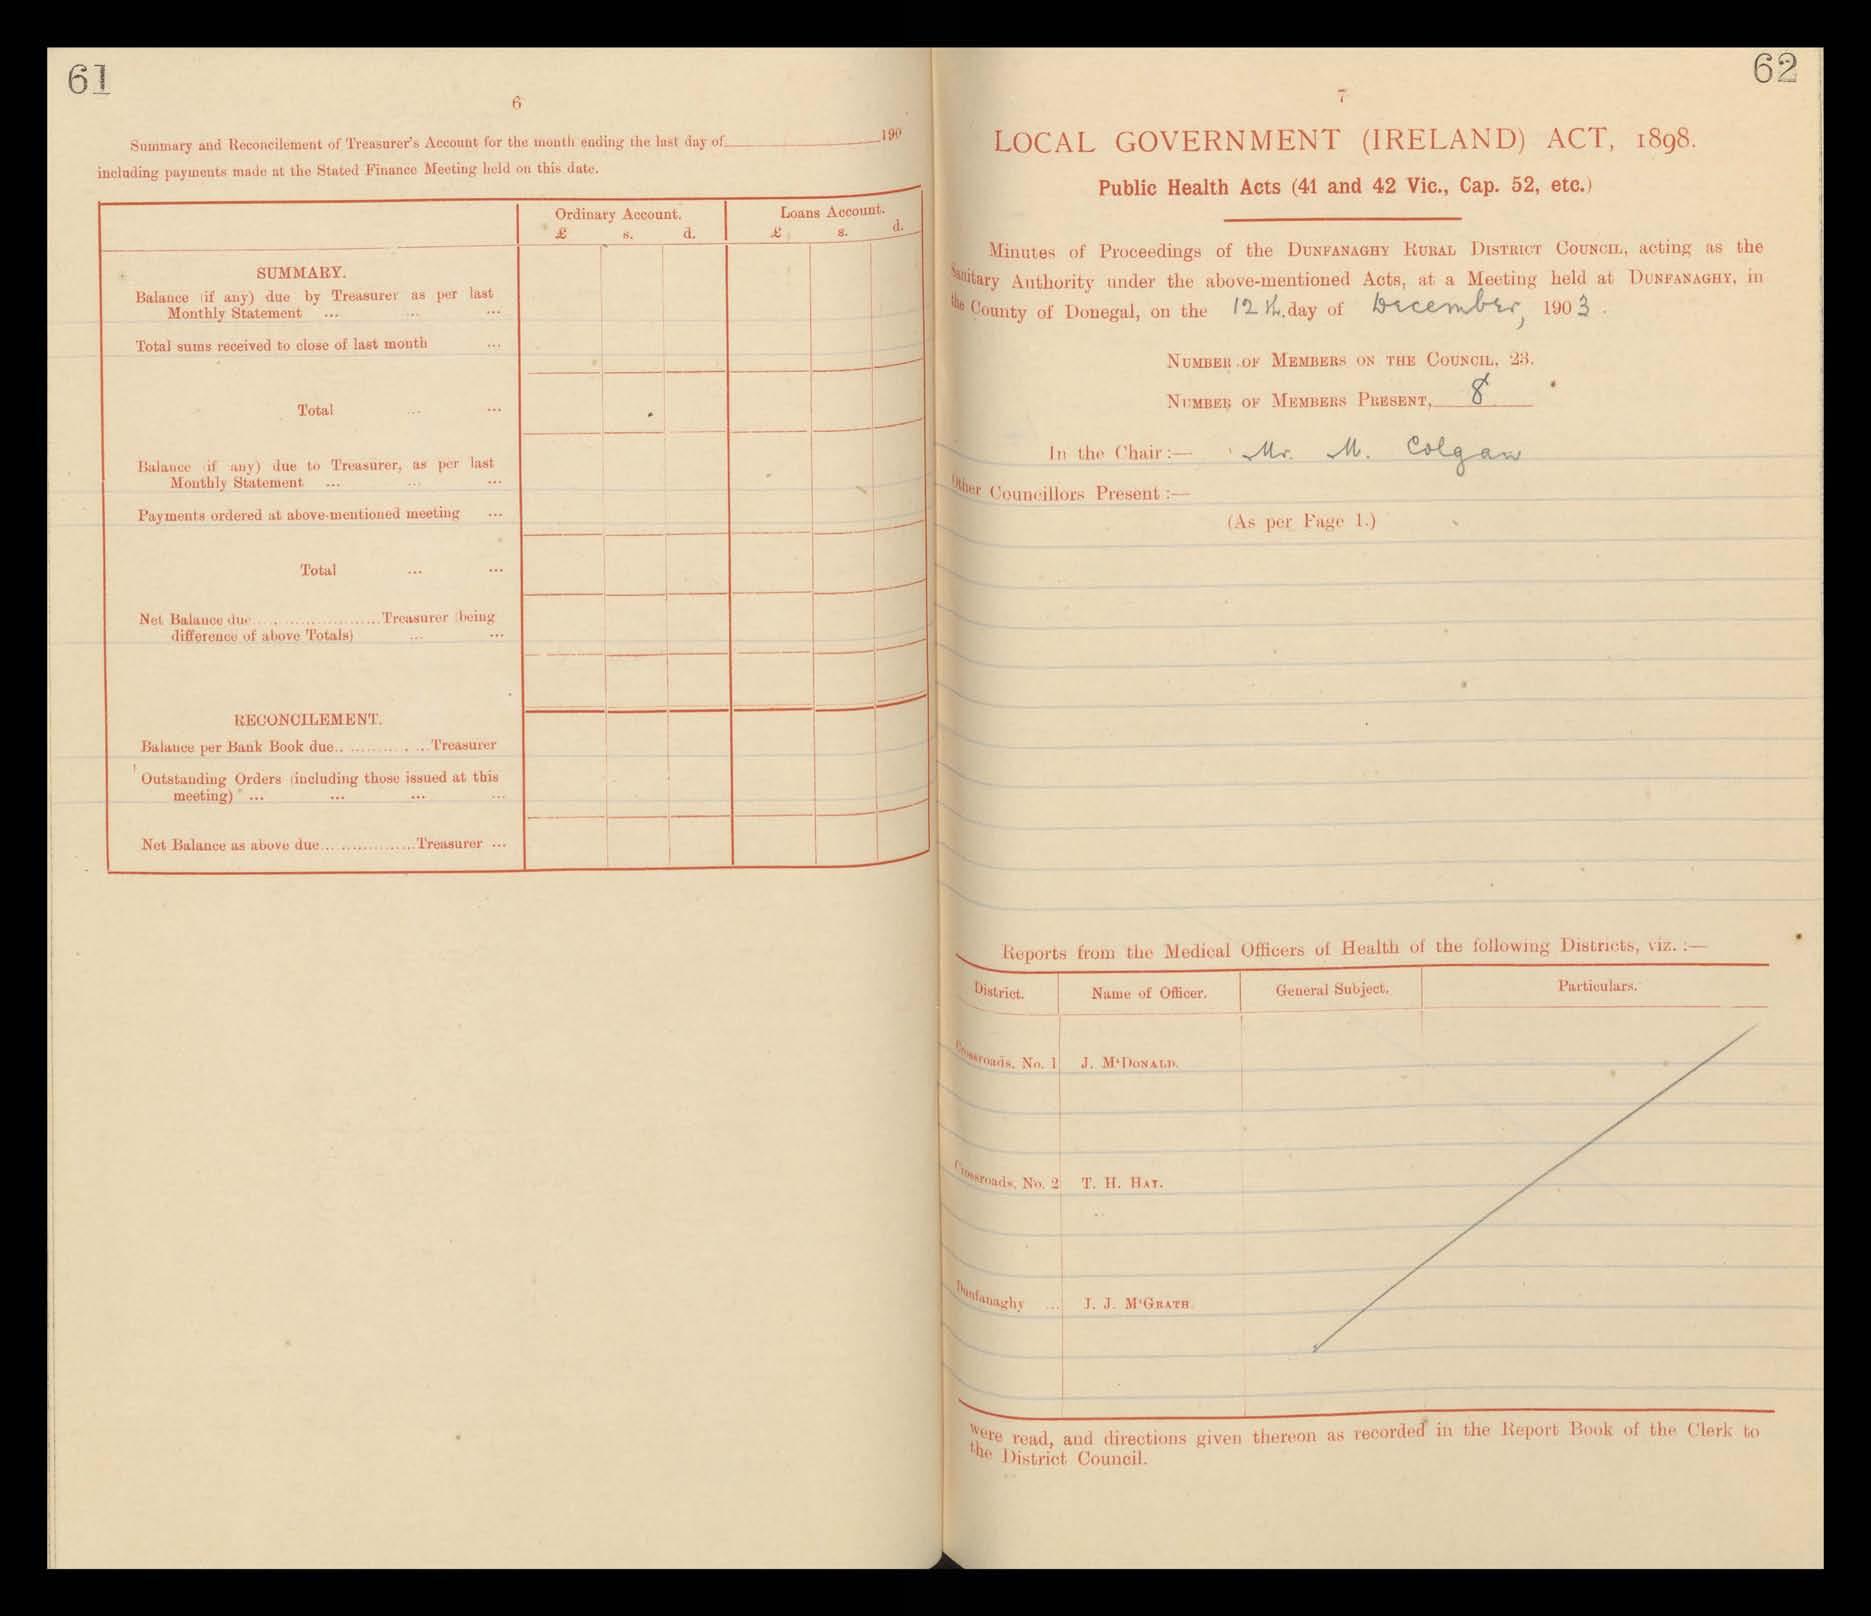 61
6
Summary and Reconcilement of Treasurer's Account for the month ending the last day of 190
including payments made at the Stated Finance Meeting held on this date.
Ordinary Account. Loans Account.
£ s. d. £ s. d.
SUMMARY.
Balance (if any) due by Treasurer as per last
Monthly Statement ... ... ...
Total sums received to close of last month ...
Total ... ...
Balance (if any) due to Treasurer, as per last
Monthly Statement ... ... ...
Payments ordered at above-mentioned meeting ...
Total ... ...
Net Balance due........................Treasurer (being
difference of above Totals) ... ...
RECONCILEMENT.
Balance per Bank Book due.................Treasurer
Outstanding Orders (including those issued at this
meeting) ... ... ... ...
Net Balance as above due..................Treasurer ...
62
7
LOCAL GOVERNMENT (IRELAND) ACT, 1898.
Public Health Acts (41 and 42 Vic., Cap. 52, etc.)
Minutes of Proceedings of the Dunfanaghy Rural District Council, acting as the
Sanitary Authority under the above-mentioned Acts, at a Meeting held at Dunfanaghy, in
the County of Donegal, on the 12th. day of December, 1903.
Number of Members on the Council, 23.
Number of Members Present, 8
In the Chair:— Mr. M. Colgan
Other Councillors Present:—
(As per Page 1.)
Reports from the Medical Officers of Health of the following Districts, viz.:—
District. Name of Officer. General Subject. Particulars.
Crossroads, No. 1 J. M'Donald.
Crossroads, No. 2 T. H. Hay.
Dunfanaghy ... J. J. M'Grath.
were read, and directions given thereon as recorded in the Report Book of the Clerk to
the District Council.